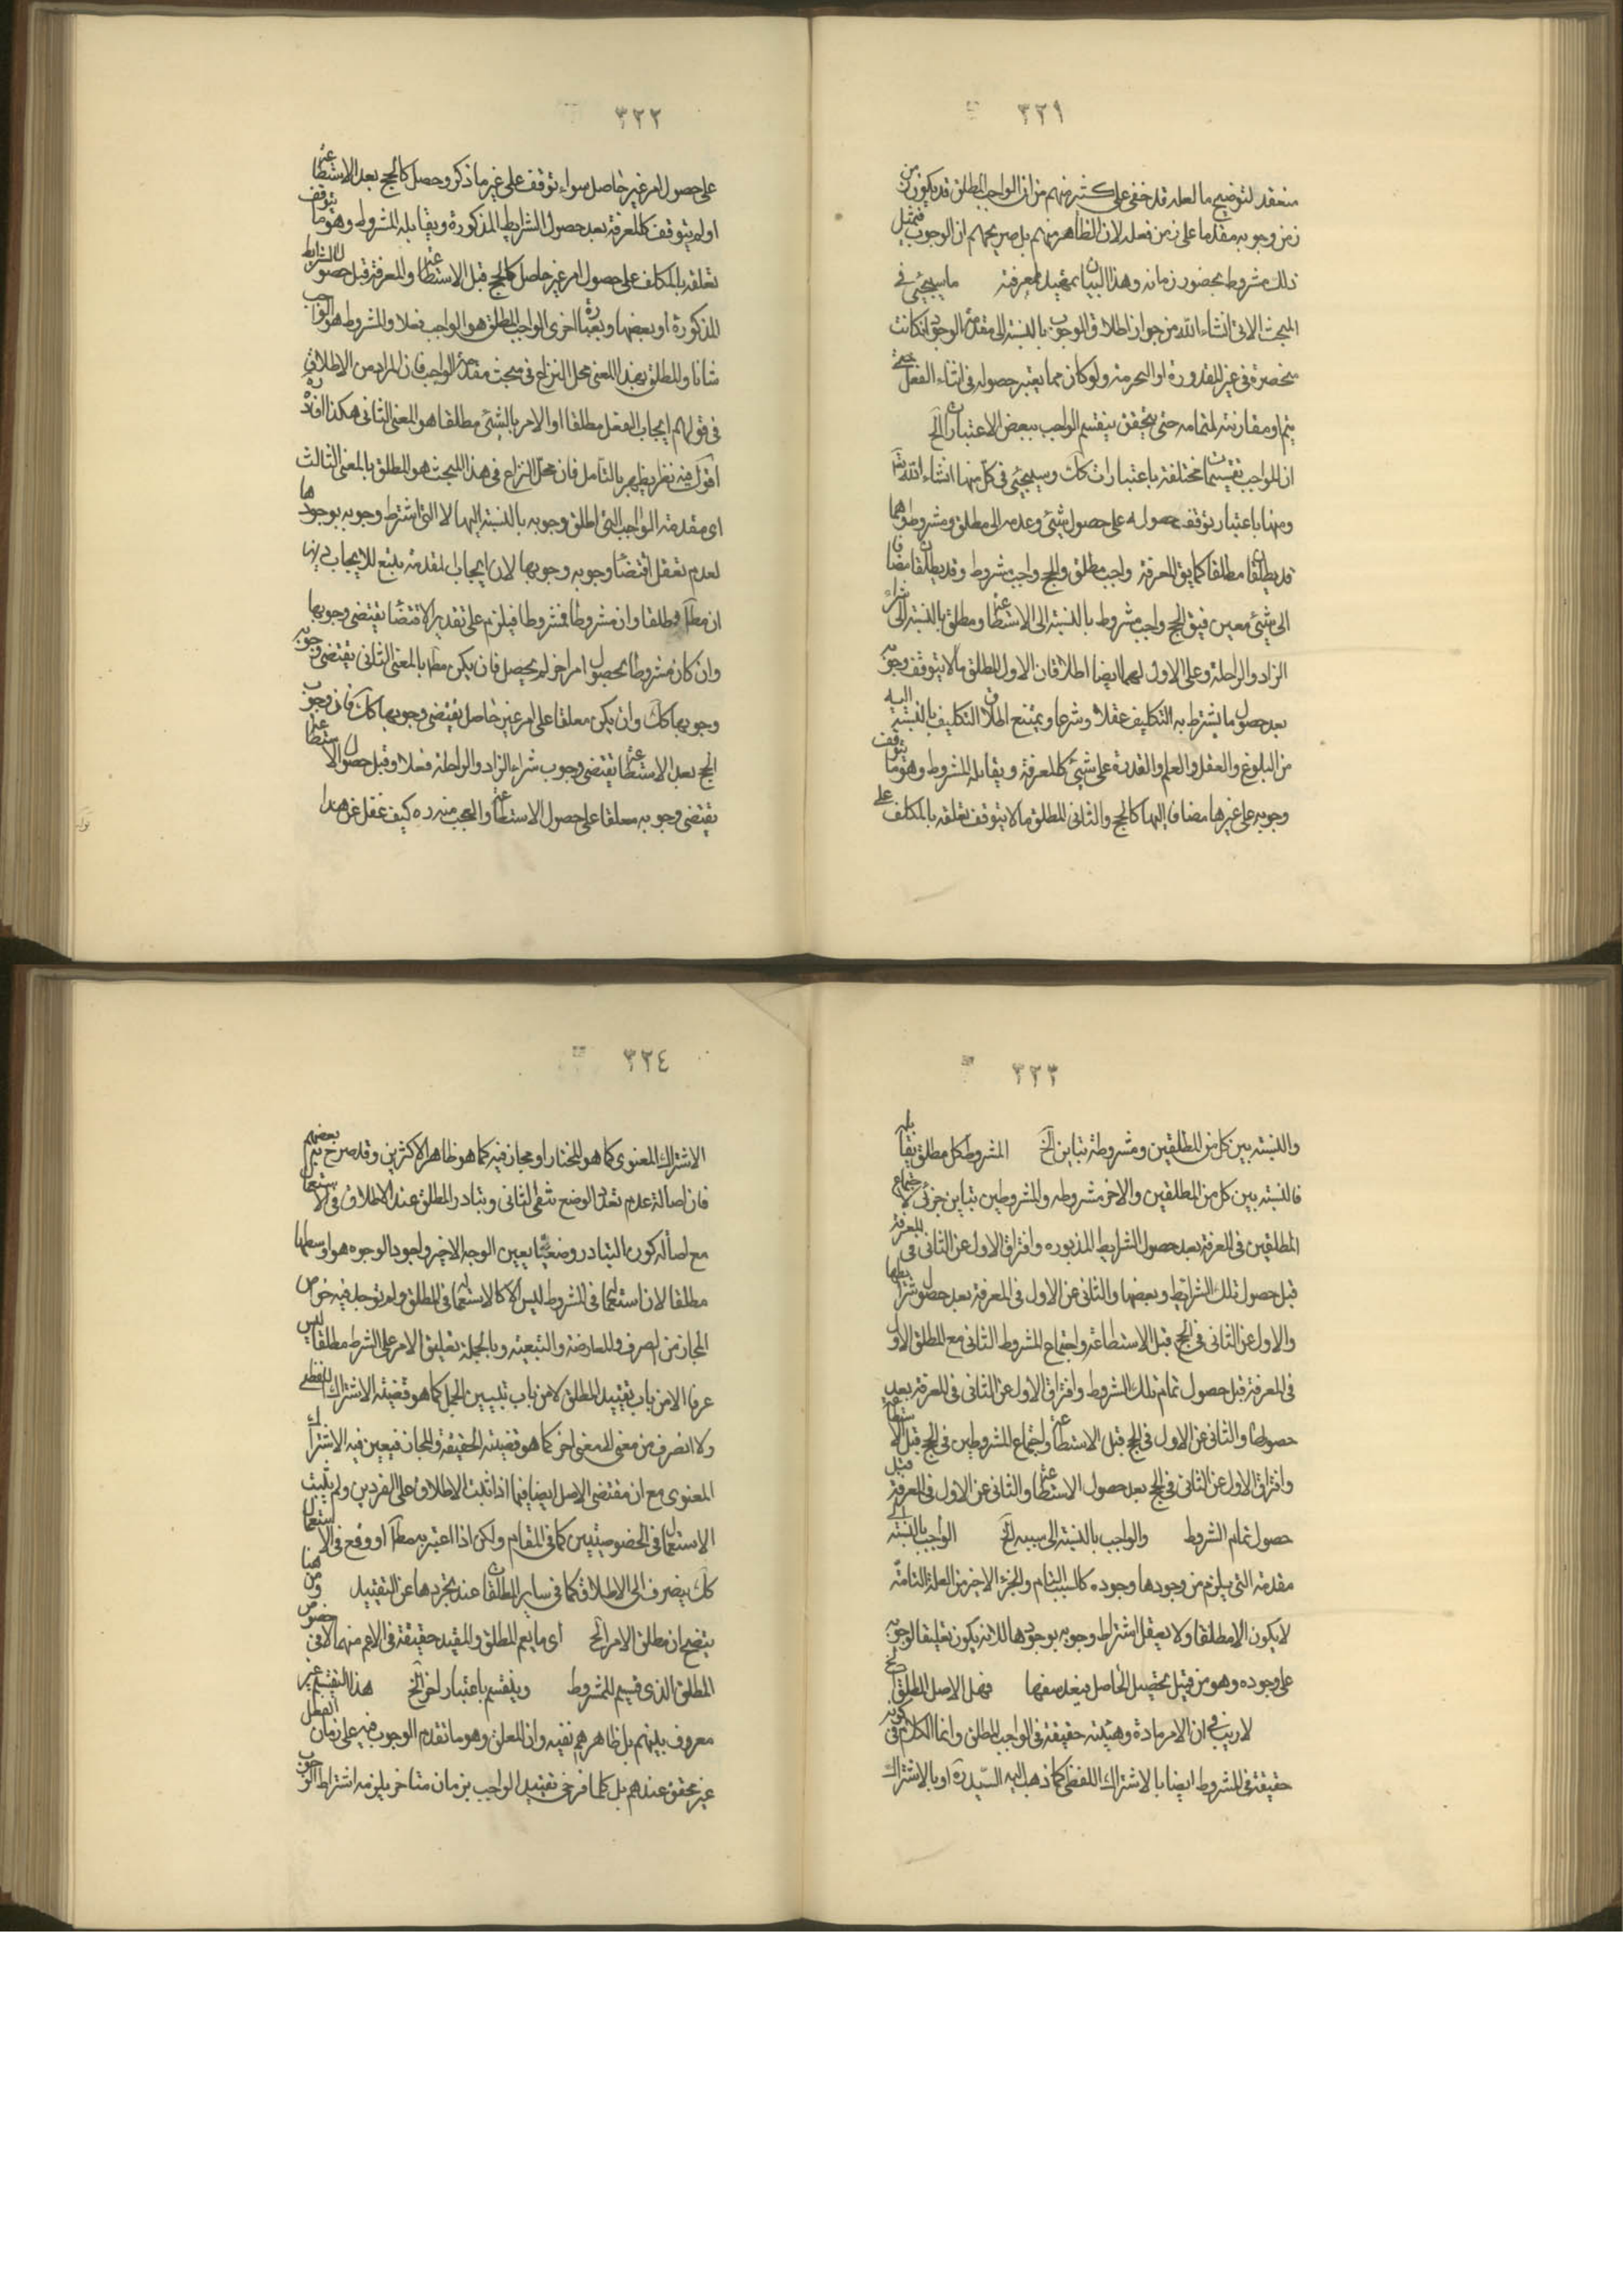 ٣٢١
منعقد لتوضيح ما لعله قد خفى على كثير منهم من ان الواجب المطلق قد يكون من
زمن وجوبه مقدما على زمن فعله لان الظاهر منهم بل صريحهم ان الوجوب فى مثل
ذلك مشروط بحضور زمانه وهذا البيان تمهيد لمعرفة ما سيجيئ فى
المبحث الاتى انشاء الله من جواز اطلاق الوجوب بالنسبة الى مقدمة الوجود ان كانت
منحصرة فى غير المقدورة او المحرمة ولو كان مما يعتبر حصوله فى اثناء الفعل حتى
يتم او مقارنته لتمامه حتى يتحقق ينقسم الواجب ببعض الاعتبارات الخ
ان للواجب تقسيمات مختلفة باعتبارات كك وسيجيئ فى كل منها انشاء الله تعالى
ومنها باعتبار توقف حصوله على حصول شيئ وعدمه الى مطلق ومشروط وهما
قد يطلقان مطلقا كما يق المعرفة واجب مطلق والحج واجب مشروط وقد يطلقان مضافا
الى شيئ معين فيق الحج واجب مشروط بالنسبة الى الاستطاعة ومطلق بالنسبة الى شراء
الزاد والراحلة وعلى الاول لهما ايضا اطلاقان الاول المطلق ما لا يتوقف وجوبه
بعد حصول ما يشترط به التكليف عقلا وشرعا ويمتنع اطلاق التكليف بالنسبة اليه
من البلوغ والعقل والعلم والقدرة على شيئ كالمعرفة ويقابله المشروط وهو ما يتوقف
وجوبه على غيرها مضافا اليها كالحج والثانى المطلق ما لا يتوقف تعلقه بالمكلف على
٣٢٢
على حصول امر غير حاصل سواء توقف على غير ما ذكر وحصل كالحج بعد الاستطاعة
او لم يتوقف كالمعرفة بعد حصول الشرايط المذكورة ويقابله المشروط وهو ما يتوقف
تعلقه بالمكلف على حصول امر غير حاصل كالحج قبل الاستطاعة والمعرفة قبل حصول الشرايط
المذكورة او بعضها وبعبارة اخرى الواجب المطلق هو الواجب فعلا والمشروط هو الواجب
شانا والمطلق بهذا المعنى محل النزاع فى مبحث مقدمة الواجب فان المراد من الاطلاق
فى قولهم ايجاب الفعل مطلقا او الامر بالشيئ مطلقا هو المعنى الثانى هكذا افاده ره
اقول فيه نظر يظهر بالتأمل فان محل النزاع فى هذا المبحث هو المطلق بالمعنى الثالث
اى مقدمة الواجب التى اطلق وجوبه بالنسبة اليها لا التى اشترط وجوبه بوجودها
لعدم تعقل اقتضاء وجوبه وجوبها لان ايجاب المقدمة يتبع للايجاب ذيها
ان مطلقا فمطلقا وان مشروطا فمشروطا فيلزم على تقدير الاقتضاء يقتضى وجوبها
وان كان مشروطا بحصول امر اخر لم يحصل فان يكن مطلقا بالمعنى الثانى يقتضى وجوبه
وجوبها كك وان يكن معلقا على امر غير حاصل يقتضى وجوبها كك فان وجوب
الحج بعد الاستطاعة يقتضى وجوب شراء الزاد والراحلة فعلا وقبل حصول الاستطاعة
يقتضى وجوبه معلقا على حصول الاستطاعة والعجب منه ره كيف غفل عن هذا
٣٢٣
والنسبة بين كل من المطلقين ومشروطه تباين الخ المشروط كل مطلق يقابله
فالنسبة بين كل من المطلقين والاخر مشروطه والمشروطين تباين جزئى لاجتماع
المطلقين فى المعرفة بعد حصول الشرايط المذبوره وافتراق الاول عن الثانى فى المعرفة
قبل حصول تلك الشرايط وبعضها والثانى عن الاول فى المعرفة بعد حصول شرايطها
والاول عن الثانى فى الحج قبل الاستطاعة واجتماع المشروط الثانى مع المطلق الاول
فى المعرفة قبل حصول تمام تلك الشروط وافتراق الاول عن الثانى فى المعرفة بعد
حصولها والثانى عن الاول فى الحج قبل الاستطاعة واجتماع المشروطين فى الحج قبل الاستطاعة
وافتراق الاول عن الثانى فى الحج بعد حصول الاستطاعة والثانى عن الاول فى المعرفة قبل
حصول تمام الشروط والواجب بالنسبة الى سببه الخ الواجب بالنسبة الى
مقدمته التى يلزم من وجودها وجوده كالسبب التام والجزء الاخير من العلة التامة
لا يكون الا مطلقا ولا يعقل اشتراط وجوبه بوجودها لانه يكون تعليقا لوجوبه
على وجوده وهو من قبيل تحصيل الحاصل فهل الاصل المطلق الخ
لا ريب فى ان الامر مادة وهيئته حقيقة فى الواجب المطلق وانما الكلام فى كونه
حقيقة فى المشروط ايضا بالاشتراك اللفظى كما ذهب اليه السيد ره او بالاشتراك
٣٢٤
الاشتراك المعنوى كما هو المختار او مجاز فيه كما هو ظاهر الاكثرين وقد صرح به بعضهم
فان اصالة عدم تعدد الوضع تنفى الثانى وتبادر المطلق عند الاطلاق فى الاستعمال
مع اصالة كون التبادر وضعيا يعين الوجه الاخير واجود الوجوه هو اوسطها
مطلقا لان استعماله فى المشروط ليس الا كالاستعمال فى المطلق ولم يوجد فيه خواص
المجاز من الصرف والمعارضة والتبعية وبالجملة تعليق الامر على الشرط مطلقا ليس
عرفا الا من باب تقييد المطلق لا من باب تبيين المجمل كما هو قضية الاشتراك اللفظى
ولا الصرف من معنى لمعنى اخر كما هو قضية الحقيقة والمجاز فيعين فيه الاشتراك
المعنوى مع ان مقتضى الاصل ايضا فيما اذا ثبت الاطلاق على الفردين ولم يثبت
الاستعمال فى الخصوصيتين كما فى المقام ولكن اذا اعتبر به مطلقا او وقع فى الاستعمال
كك ينصرف الى الاطلاق كما فى ساير المطلقات عند تجردها عن التقييد ومن هنا
يتضح ان مطلق الامر الخ اى ما يعم المطلق والمقيد حقيقة فى الاعم منهما لا فى خصوص
المطلق الذى قسيم للمشروط وينقسم باعتبار اخر الخ هذا التقسيم غير
معروف بينهم بل ظاهرهم نفيه وان المعلق وهو ما تقدم الوجوب فيه على زمان الفعل
غير محقق عندهم بل كلما فرض تقييد الواجب بزمان متاخر يلزمه اشتراط الوجوب